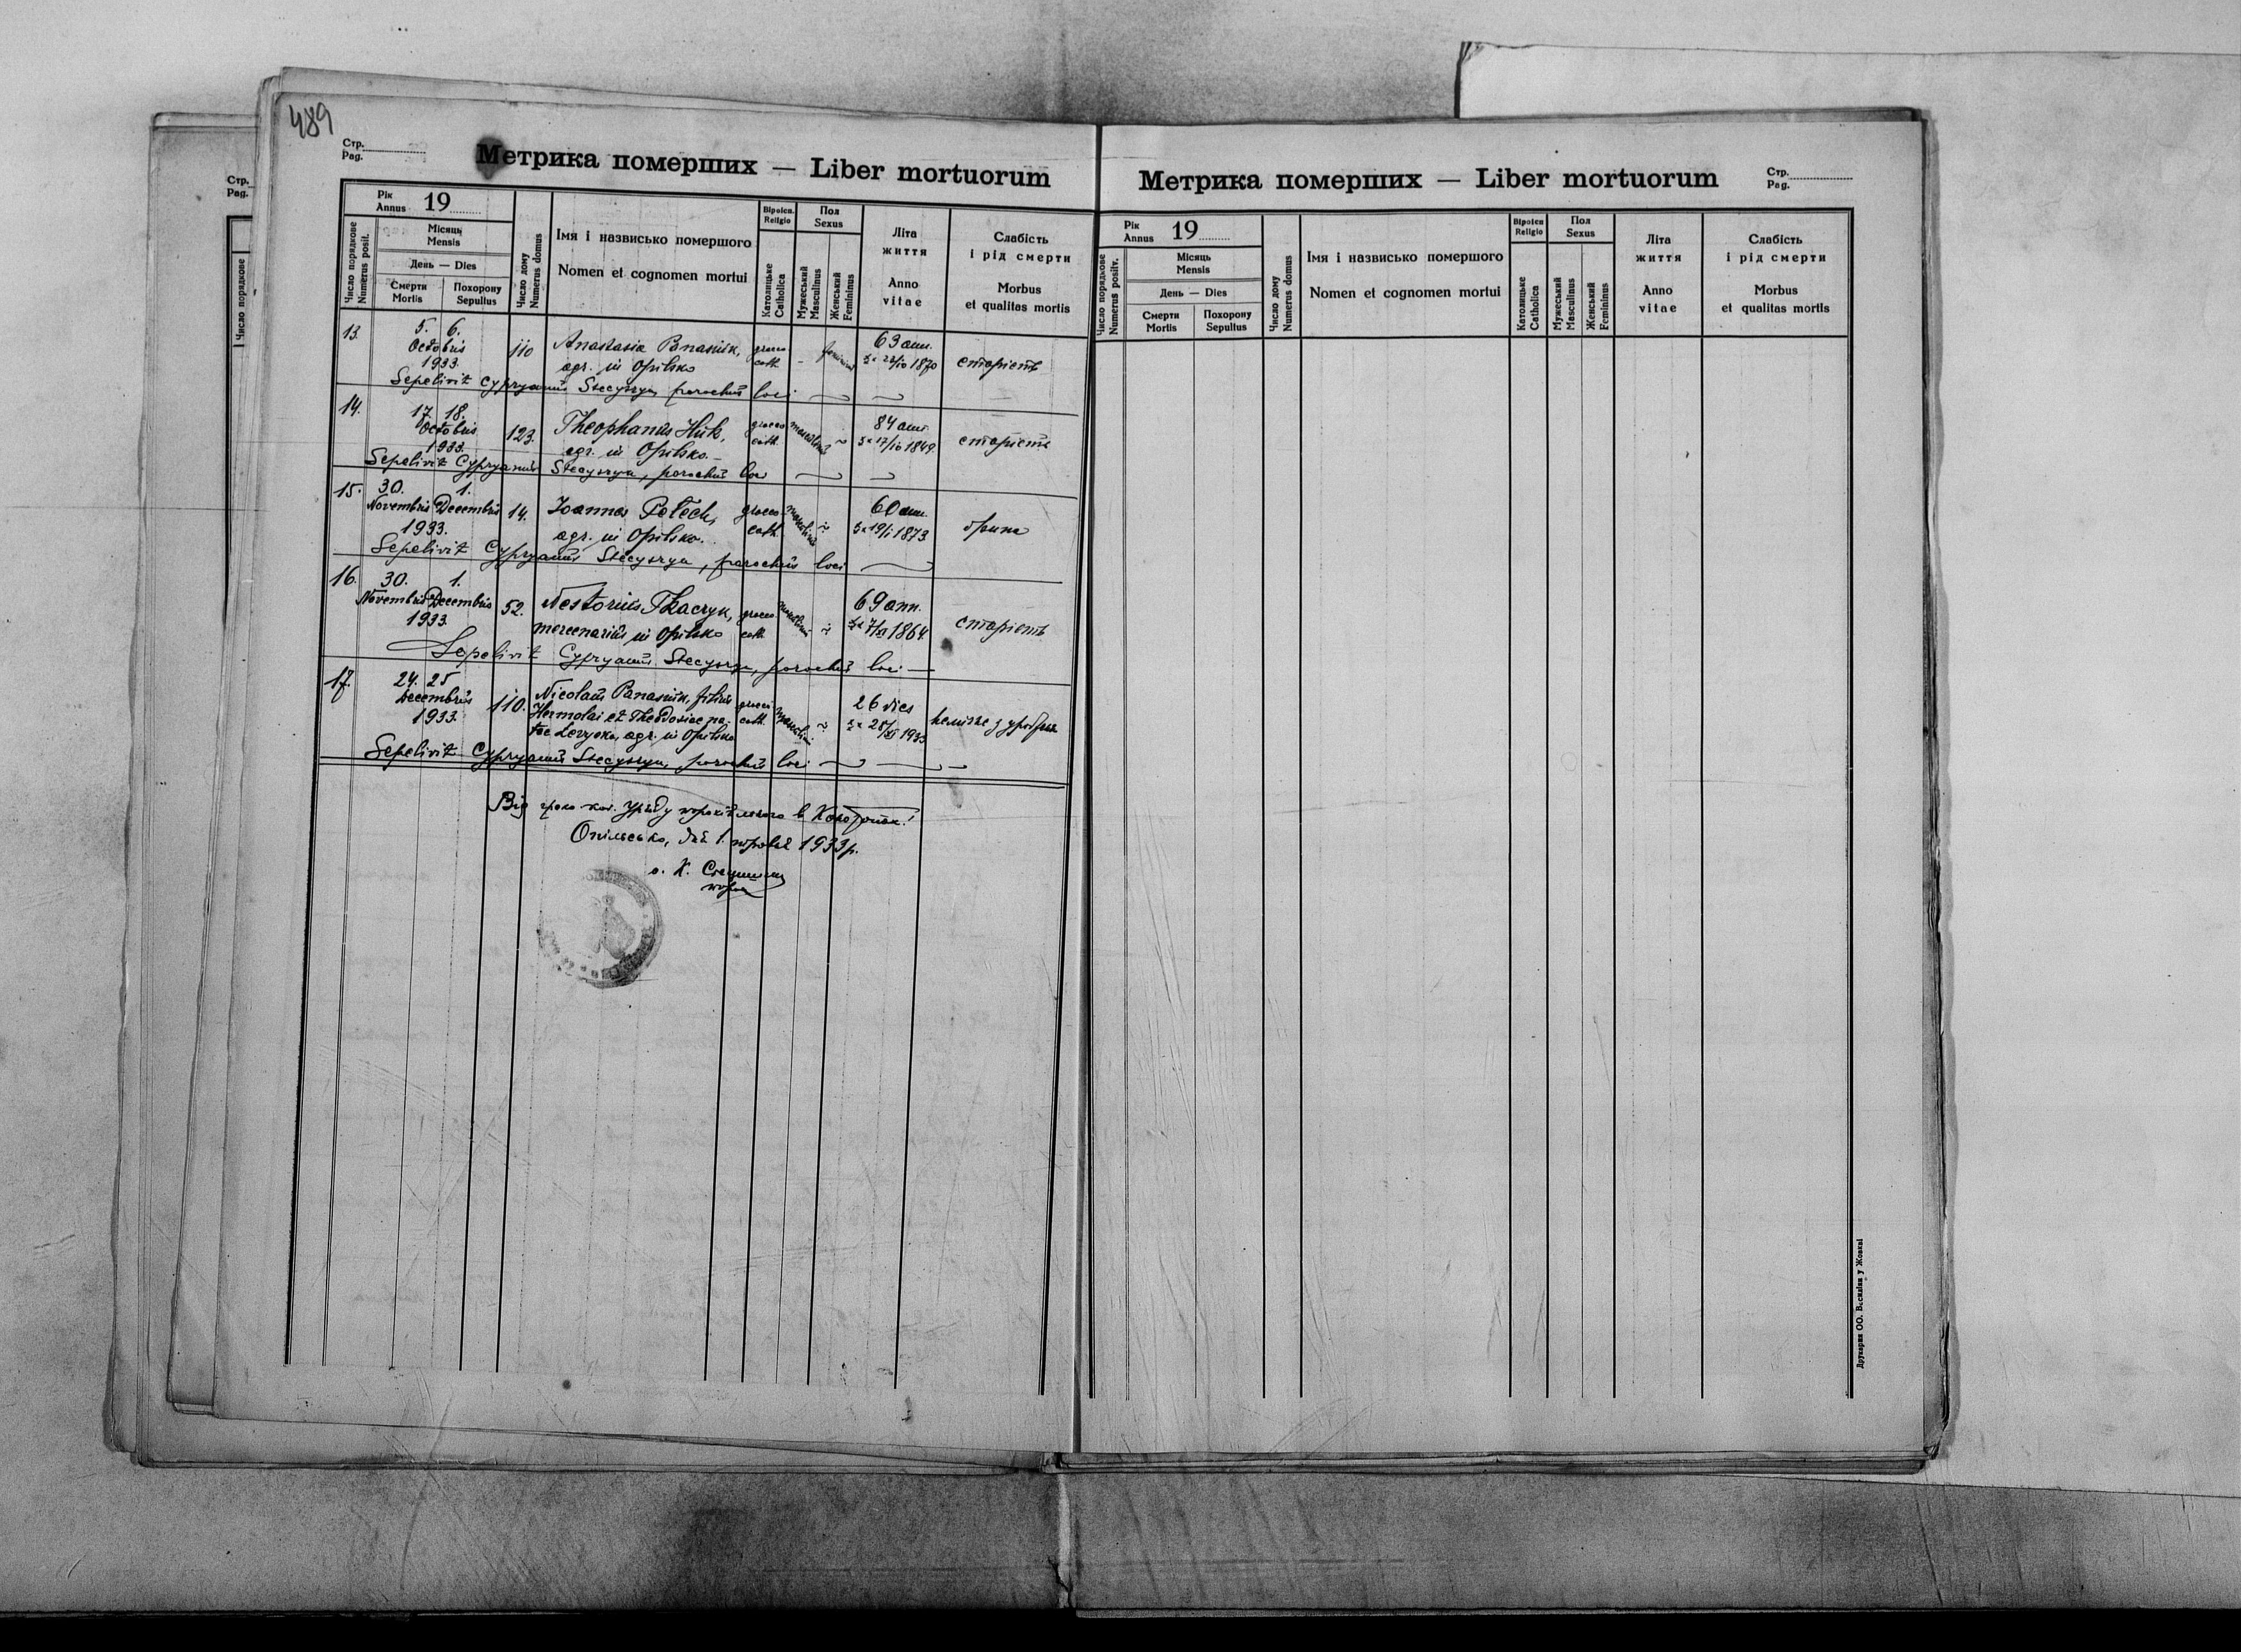 489
Стр.
Pag.
Метрика померших — Liber mortuorum
Рік
Annus 19
Число порядкове
Numerus posit.
Місяць
Mensis
День — Dies
Смерти
Mortis
Похорону
Sepultus
Число дому
Numerus domus
Імя і назвисько помершого
Nomen et cognomen mortui
Віроісп.
Religio
Католицьке
Catholica
Пол
Sexus
Мужеський
Masculinus
Женський
Femininus
Літа
життя
Anno
vitae
Слабість
і рід смерти
Morbus
et qualitas mortis
13. 5. 6. Octobris 1933. 110 Anastasia Panasiuk, agr. in Opilsko graeco cath. – 63 ann. 1870 старість
Sepelivit Cypryanus Stecyszyn, parochus loci
14. 17. 18. Octobris 1933. 123. Theophanus Huk, agr. in Opilsko. graeco cath. 84 ann. 17/10 1849. старість
Sepelivit Cypryanus Stecyszyn, parochus loci
15. 30. Novembris 1. Decembris 1933. 14. Joannes agr. in Opilsko. graeco cath. 60 ann. 19/1 1873
Sepelivit Cypryanus Stecyszyn, parochus loci
16. 30. Novembris 1. Decembris 1933. 52. Nestorius Tkaczyk, mercenarius in Opilsko graeco cath. 69 ann. 1864 старість
Sepelivit Cypryanus Stecyszyn, parochus loci
17. 24. 25 Decembris 1933. 110. Nicolaus Panasiuk, filius Hermolai et Theodosiae natae agr. in Opilsko graeco cath. 26 dies 1933
Sepelivit Cypryanus Stecyszyn, parochus loci
Від греко-кат. Уряду парохіяльного в
Опільсько, дня 1. 1933 р.
о. К. Стецишин
парох
Метрика померших — Liber mortuorum
Стр.
Pag.
Рік
Annus 19
Число порядкове
Numerus positv.
Місяць
Mensis
День — Dies
Смерти
Mortis
Похорону
Sepultus
Число дому
Numerus domus
Імя і назвисько помершого
Nomen et cognomen mortui
Віроісп
Religio
Католицьке
Catholica
Пол
Sexus
Мужеський
Masculinus
Женський
Femininus
Літа
життя
Anno
vitae
Слабість
і рід смерти
Morbus
et qualitas mortis
Друкарня ОО. Василіян у Жовкві
Стр.
Pag.
Число порядкове